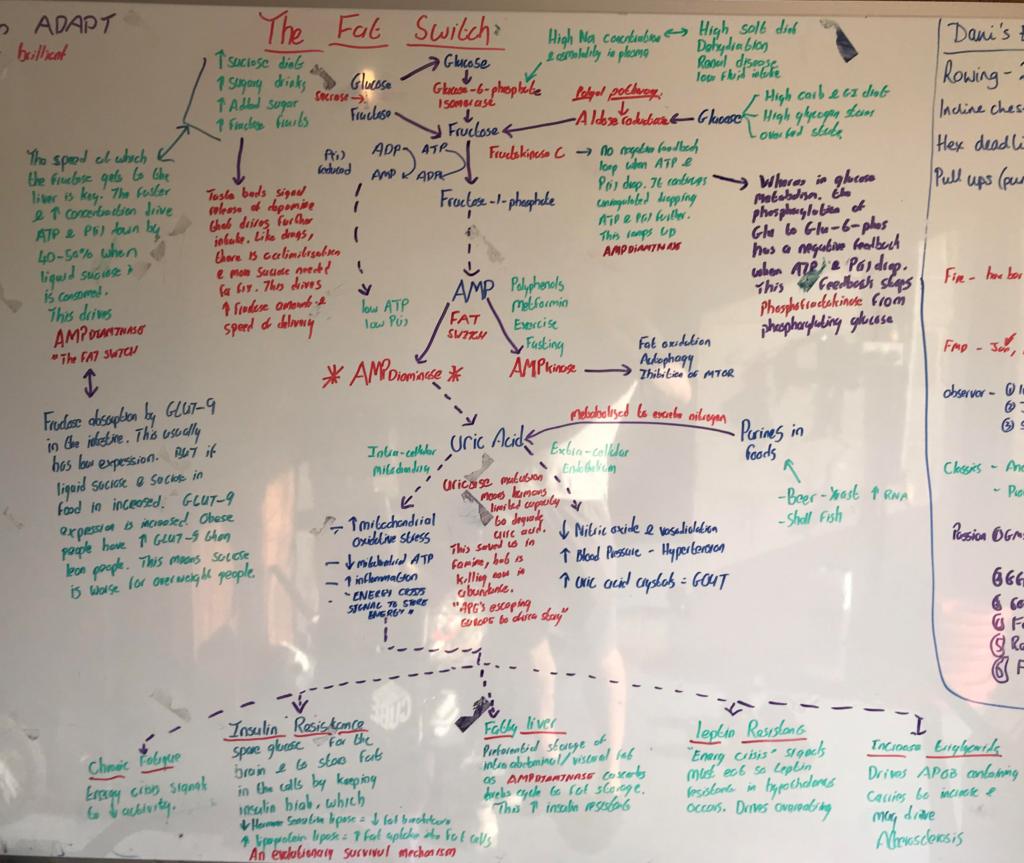 ADAPT
brilliant
The Fat Switch
↑ Sucrose diet
↑ Sugary drinks
↑ Added sugar
↑ Fructose fruits
Glucose
Sucrose →
Fructose
Glucose
Glucose-6-phosphate
Isomerase
Fructose
High Na concentration
& osmolality in plasma
High salt diet
Dehydration
Renal disease
low fluid intake
Polyol pathway
Aldose reductase
Glucose
- High carb & GI diet
- High glycogen stores
- over fed state
P(i)
reduced
ADP
ATP
AMP
ADP
Fructokinase C
→ No negative feedback
loop when ATP &
P(i) drop. It continues
unregulated dropping
ATP & P(i) further.
This ramps up
AMPDIAMINASE
Fructose-1-phosphate
Whereas in glucose
metabolism, the
phosphorylation of
Glu to Glu-6-phos
has a negative feedback
when ATP & P(i) drop.
This feedback stops
Phosphofructokinase from
phosphorylating glucose
The speed at which
the fructose gets to the
liver is key. The faster
& ↑ concentration drive
ATP & P(i) down by
40-50% when
liquid sucrose is
is consumed.
This drives
AMPDIAMINASE
"The FAT SWITCH
Taste buds signal
release of dopamine
that drives further
intake. Like drugs,
there is acclimitisation
& more sucrose needed
for fix. This drives
↑ fructose amount &
speed of delivery
low ATP
low P(i)
AMP
FAT
SWITCH
Polyphenols
Metformin
Exercise
Fasting
* AMPDiaminase *
AMPkinase
Fat oxidation
Autophagy
Inhibition of MTOR
Fructose absorption by GLUT-9
in the intestine. This usually
has low expression. BUT if
liquid sucrose & sucrose in
food in increased. GLUT-9
expression is increased. Obese
people have ↑ GLUT-9 than
lean people. This means sucrose
is worse for overweight people.
Metabolised to excrete nitrogen
Uric Acid
Purines in
foods
- Beer - Yeast ↑ RNA
- Shell Fish
Intra-cellular
Mitochondria
Extra-cellular
Endothelium
Uricase mutation
means humans
limited capacity
to degrade
uric acid.
This saved us in
famine, but is
killing now in
abundance.
"APE's escaping
EUROPE to africa story"
- ↑ mitochondrial
oxidative stress
- ↓ mitochondrial ATP
- ↑ inflammation
- "ENERGY CRISIS
SIGNAL TO STORE
ENERGY"
↓ Nitric oxide & vasodilation
↑ Blood Pressure - Hypertension
↑ Uric acid crystals = GOUT
Chronic Fatigue
Energy crisis signals
to ↓ activity.
Insulin Resistance
spare glucose for the
brain & to store fats
in the cells by keeping
insulin high, which
↓ Hormone Sensitive lipase = ↓ Fat breakdown
↑ lipoprotein lipase = ↑ Fat uptake into Fat cells
An evolutionary survival mechanism
Fatty liver
Preferential storage of
intra abdominal/visceral fat
as AMPDIAMINASE converts
krebs cycle to fat storage.
This ↑ insulin resistance
Leptin Resistance
"Energy crisis" signals
must eat so Leptin
resistance in hypothalamus
occurs. Drives overeating
Increase Triglycerids
Drives APOB containing
Carries to increase &
may drive
Atherosclerosis
Dani's
Rowing -
Incline ches
Hex deadli
Pull ups (pu
Fin - hex bar
FMD - Jan,
observor - ① I
②
③ S
Classics - An
Passion